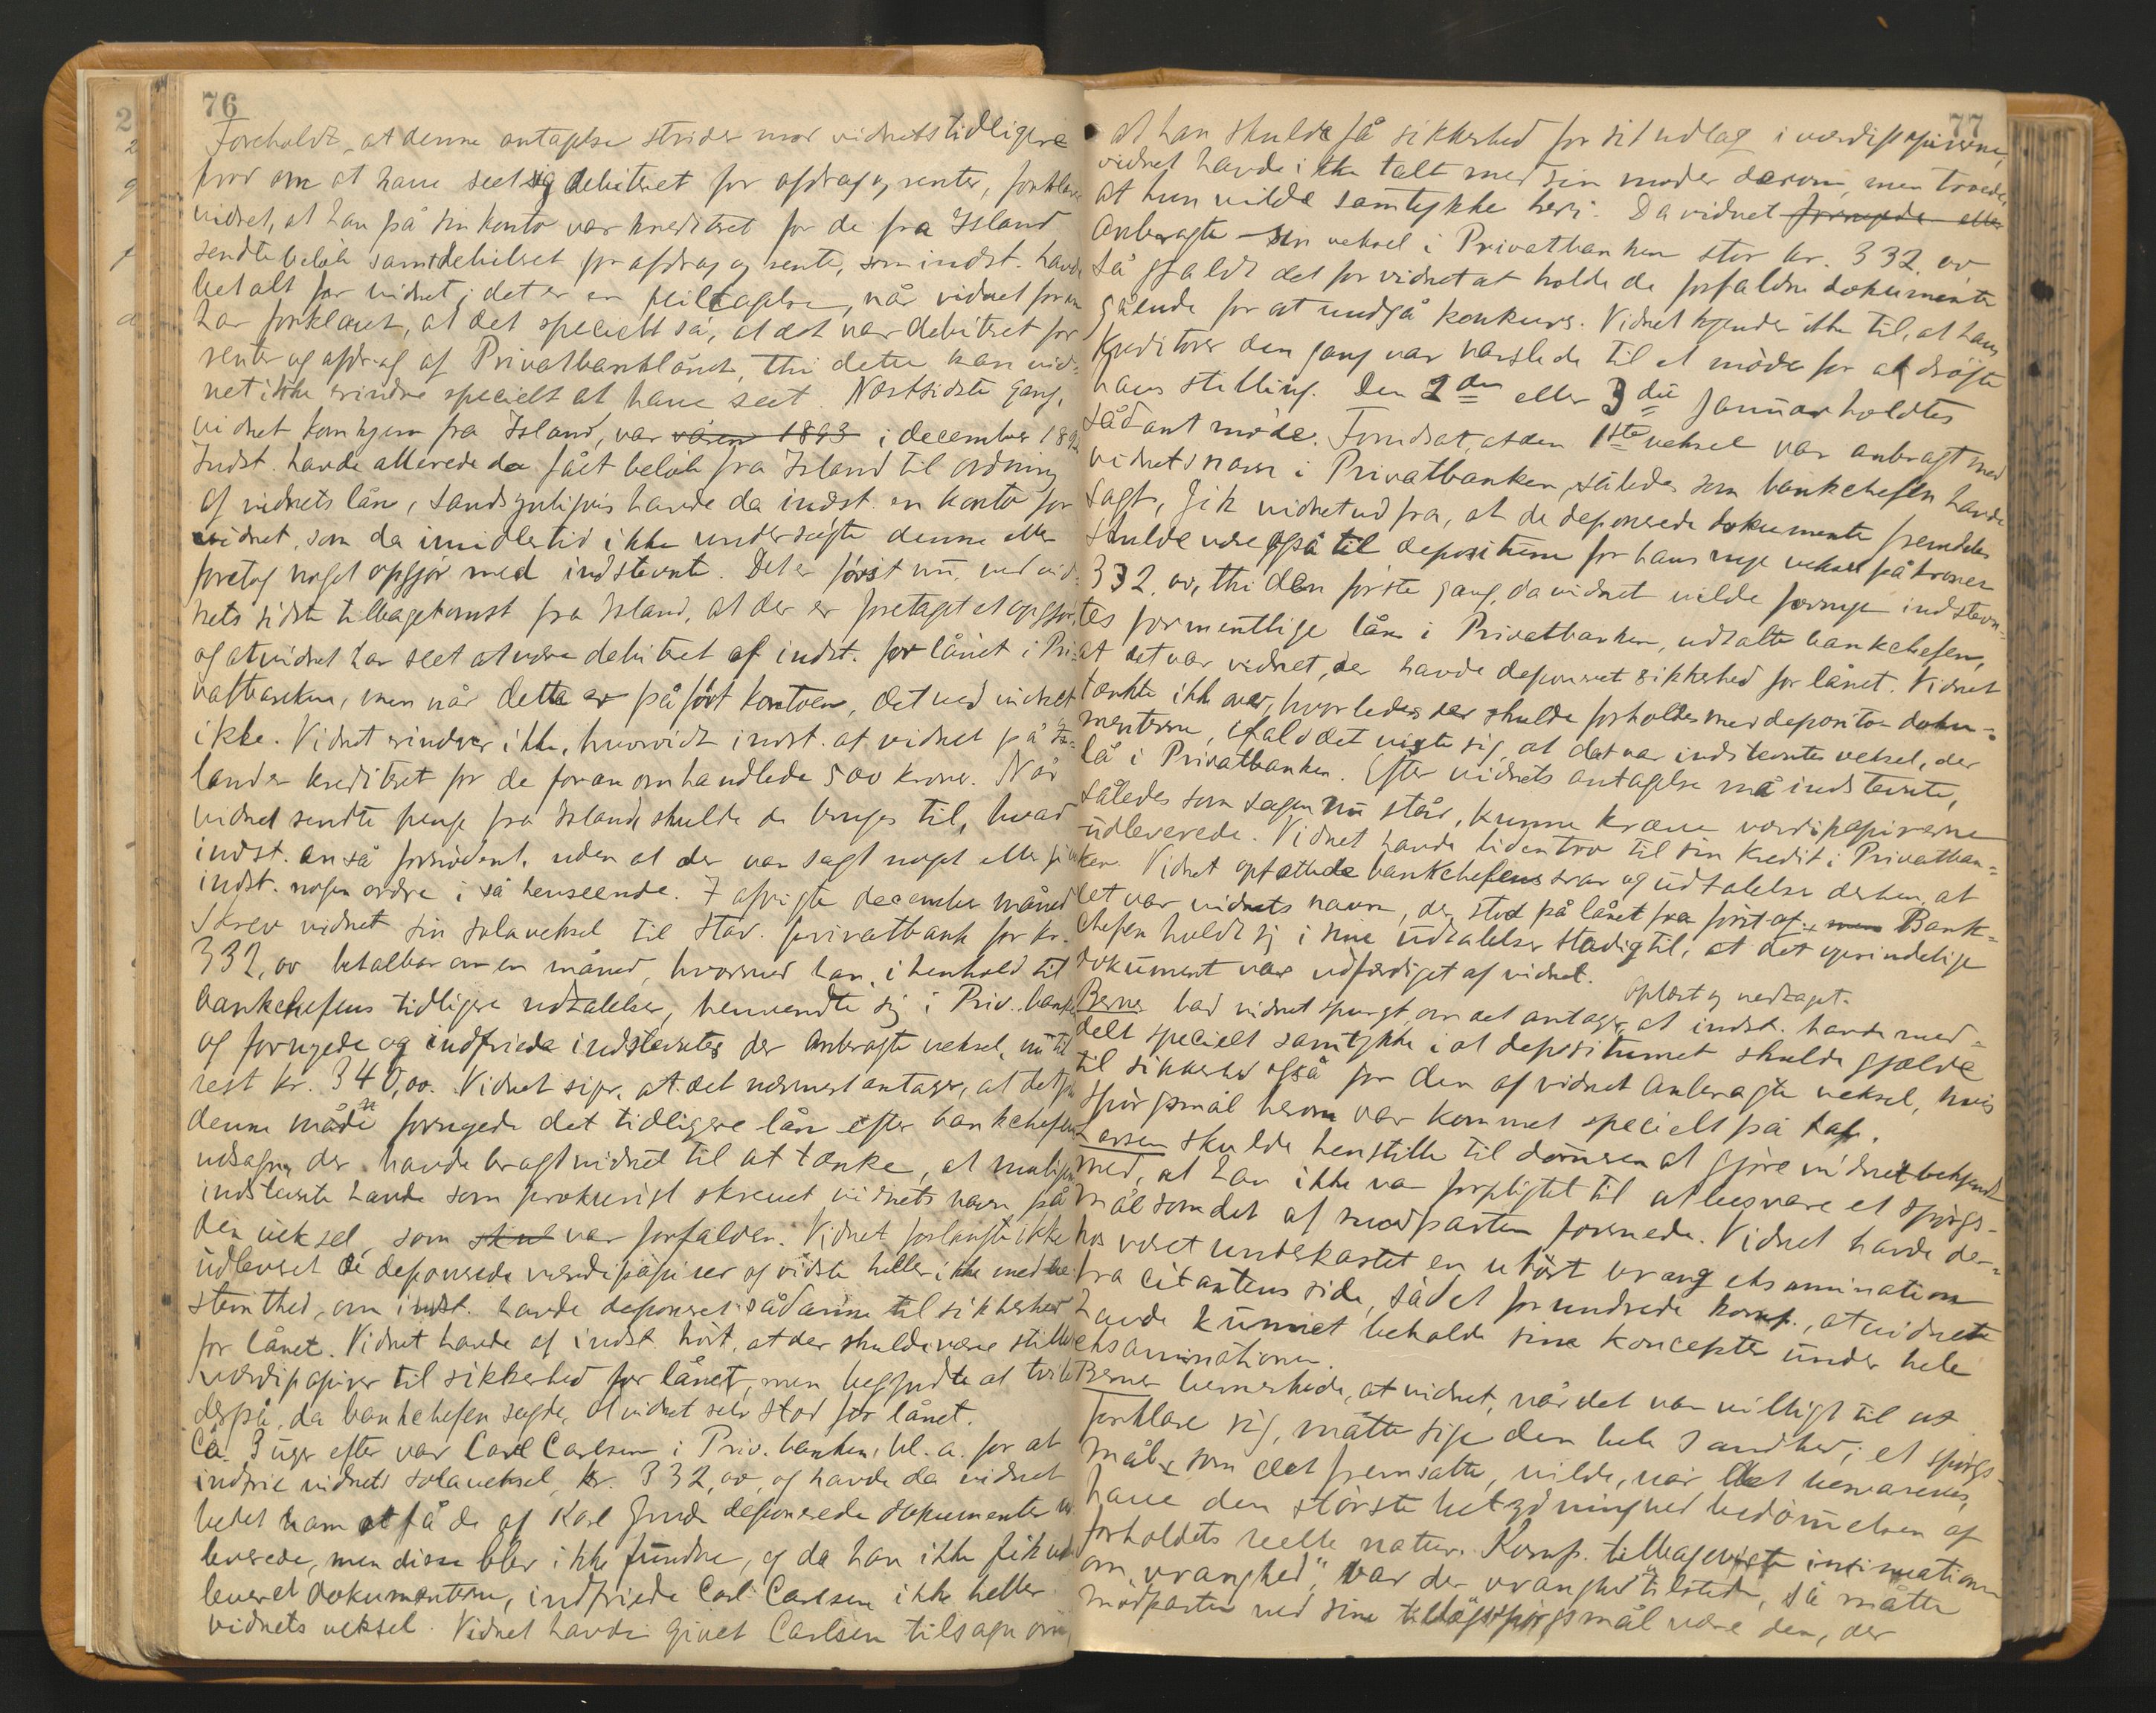 76
Foreholdt, at denne antagelse strider mod vidnets tidligere
prov om at have seet sig debiteret for afdrag og renter, forklarer
vidnet, at han på sin konto var krediteret for de fra Island
sendte beløb samt debiteret for afdrag og rente, som indst. havde
betalt for vidnet; det er en feiltagelse, når vidnet foran
har forklaret, at det specielt så, at det var debiteret for
renter og afdrag af Privatbanklånet, thi dette kan vid=
net ikke erindre specielt at have seet. Næstsidste gang,
vidnet kom hjem fra Island, var våren 1893 i december 1892
Indst. havde allerede da fået beløb fra Island til ordning
af vidnets lån, sandsynligvis havde da indst. en konto for
vidnet, som da imidlertid ikke undersøgte denne eller
foretog noget opgjør med indstevnte. Det er først nu, ved vid=
nets sidste tilbagekomst fra Island, at der er foretaget et opgjør,
og at vidnet har seet at være debiteret af indst. for lånet i Pri=
vatbanken, men når dette er påført kontoen, det ved vidnet
ikke. Vidnet erindrer ikke, hvorvidt indst. at vidnet på Is=
land er krediteret for de foran omhandlede 500 kroner. Når
vidnet sendte penge fra Island, skulde de bruges til, hvad
indst. anså fornødent, uden at der var sagt noget eller givet
indst. nogen ordre i så henseende. 7 afvigte december måned
skrev vidnet sin solaveksel til Stav. privatbank for kr.
332,00 betalbar om en måned, hvormed han, i henhold til
bankchefens tidligere udtalelse, henvendte sig i Priv.banken
og fornyede og indfriede indstevntes der anbragte veksel, nu til
rest kr. 340,00. Vidnet siger, at det nærmest antager, at det på
denne måde fornyede det tidligere lån efter bankchefens
udsagn, der havde bragt vidnet til at tænke, at muligens
indstevnte havde som prokurist skrevet vidnets navn på
den veksel, som skul var forfalden. Vidnet forlangte ikke
udleveret de deponerede værdipapirer og vidste heller ikke med be=
stemthed, om indst. havde deponeret sådanne til sikkerhed
for lånet. Vidnet havde af indst. hørt, at der skulde være stillet
værdipapirer til sikkerhed for lånet, men begyndte at tvile
derpå, da bankchefen sagde, at vidnet selv stod for lånet.
Ca. 3 uger efter var Carl Carlsen i Priv. banken, bl. a. for at
indfrie vidnets solaveksel, kr. 332,00, og havde da vidnet
bedet ham at få de af Karl deponerede dokumenter ud=
leverede, men disse blev ikke fundne, og da han ikke fik ud
leveret dokumenterne, indfriede Carl Carlsen ikke heller
vidnets veksel. Vidnet havde givet Carlsen tilsagn om,
77
at han skulde få sikkerhed for sit udlæg i værdipapirerne,
vidnet havde ikke talt med sin moder derom, men troede,
at hun vilde samtykke heri. Da vidnet fornyede eller
anbragte sin veksel i Privatbanken stor kr. 332,00
så gjaldt det for vidnet at holde de forfaldne dokumenter
gående for at undgå konkurs. Vidnet kjender ikke til, at hans
kreditorer den gang var varslede til et møde for at drøfte
hans stilling. Den 2den eller 3die januar holdtes
sådant møde. Forudsat, at den 1ste veksel var anbragt med
vidnets navn i Privatbanken, således som bankchefen havde
sagt, gik vidnet ud fra, at de deponerede dokumenter fremdeles
skulde være også til depositum for hans nye veksel på kroner
332,00, thi den første gang, da vidnet vilde fornye indstevn=
tes formentlige lån i Privatbanken, udtalte bankchefen,
at det var vidnet, der havde deponeret sikkerhed for lånet. Vidnet
tænkte ikke over, hvorledes der skulde forholdes med deponitoe doku=
menterne, ifald det viste sig, at det var indstevntes veksel, der
lå i Privatbanken. Efter vidnets antagelse må indstevnte,
således som sagen nu står, kunne kræve værdipapirerne
udleverede. Vidnet havde liden tro til sin kredit i Privatban=
ken. Vidnet opfattede bankchefens svar og udtalelse derhen, at
det var vidnets navn, der stod på lånet fra først af. men Bank=
chefen holdt sig i sine udtalelser stadig til, at det oprindelige
dokument var udfærdiget af vidnet.
Oplæst og vedtaget.
Berner bad vidnet spurgt, om det antager, at indst. havde med=
delt specielt samtykke i at depositumet skulde gjælde
til sikkerhed også for den af vidnet anbragte veksel, hvis
spørgsmål herom var kommet specielt på tale.
Larsen skulde henstille til domeren at gjøre vidnet bekjendt
med, at han ikke var forpligtet til at besvare et spørgs=
mål som det af modparten forenede. Vidnet havde des=
hos været underkastet en uhørt vrang eksamination
fra citantens side, så det forundrede komp., at vidnet
havde kunnet beholde sine koncepter under hele
eksaminationen.
Berner bemerkede, at vidnet, når det var villigt til at
forklare sig, måtte sige den hele sandhed; et spørgs=
mål, som det fremsatte, vilde, når det besvaredes,
have den største betydning ved bedømmelsen af
forholdets reelle natur. Komp. tilbageviste insinuationen
om „vranghed“; var der vranghed tilstede, så måtte
modparten ved sine tillægsspørgsmål være den, der